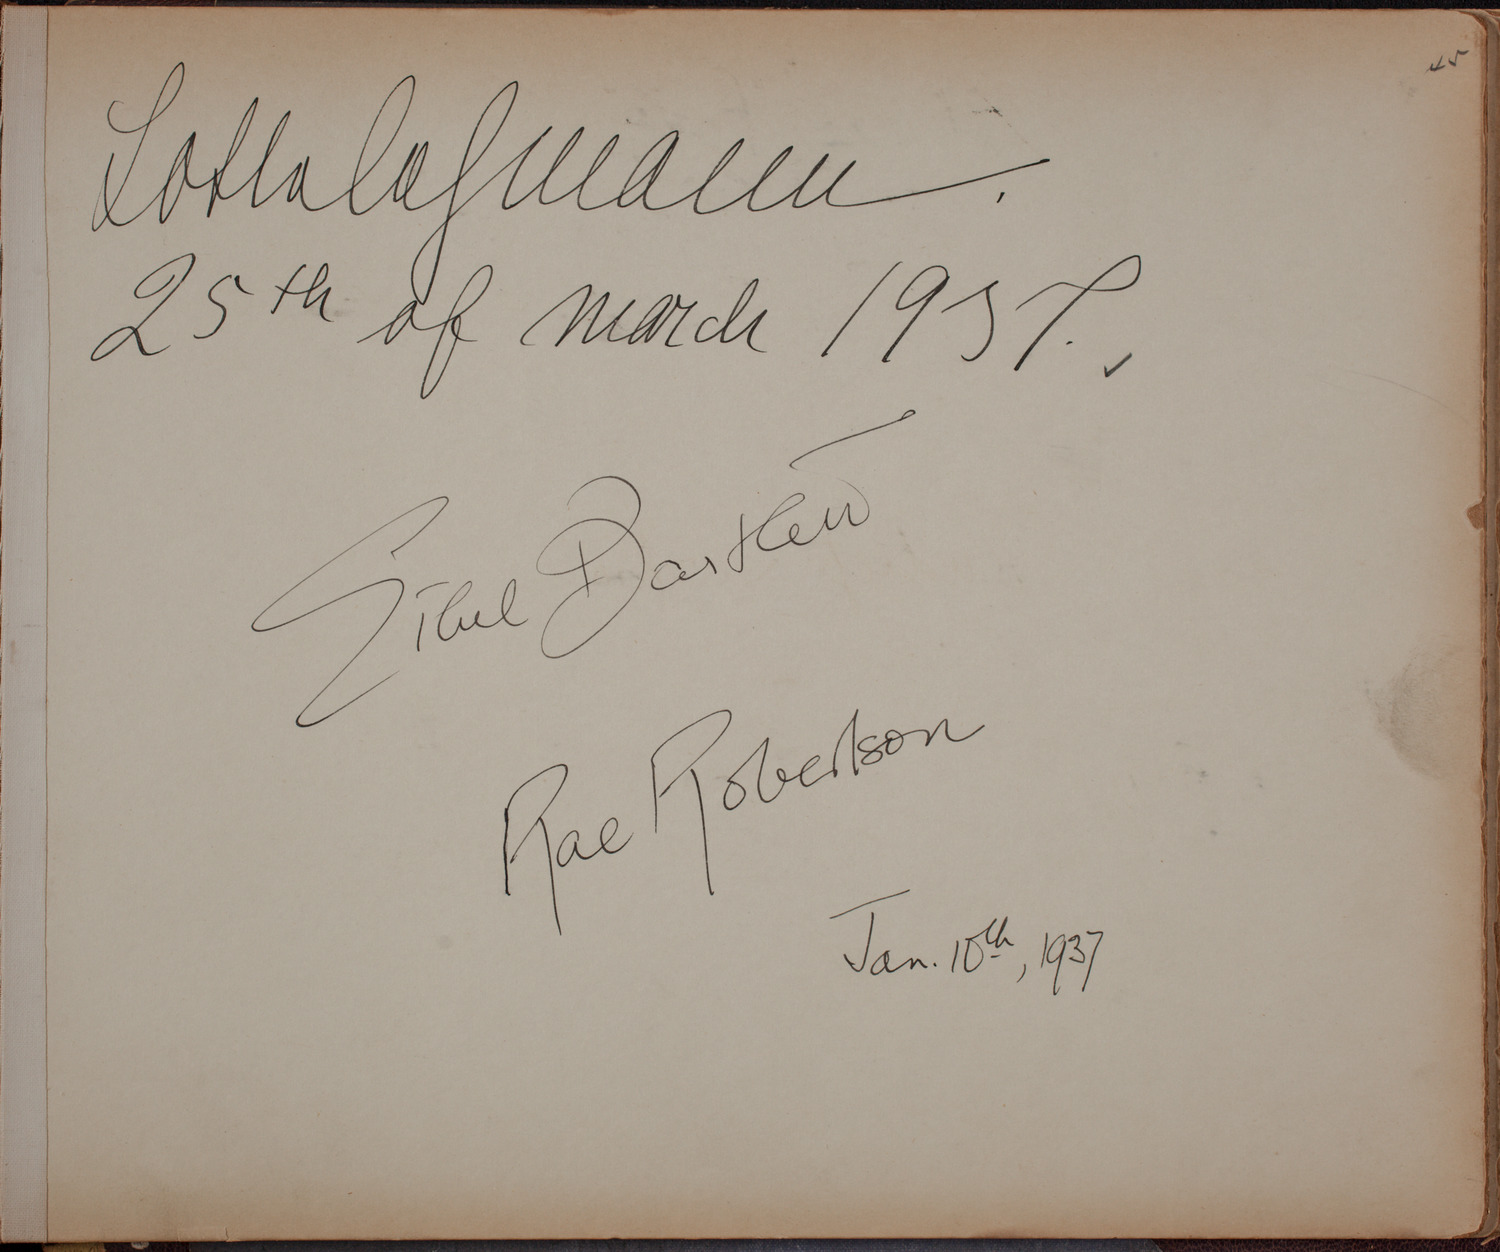 45
Lotte Lehmann.
25th of March 1937.
Ethel Bartlett
Rae Robertson
Jan. 10th, 1937